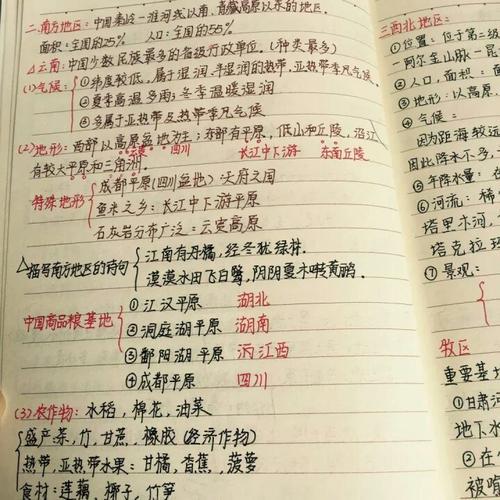 二.南方地区:中国秦岭—淮河线以南,青藏高原以东的地区.
面积:全国的25% 人口:全国的55%
△云南:中国少数民族最多的省级行政单位.(种类最多)
(1)气候:①纬度较低,属于湿润.半湿润的热带,亚热带季风气候
②夏季高温多雨;冬季温暖湿润
③多属于亚热带及热带季风气候
(2)地形:西部以高原盆地为主;东部有平原,低山和丘陵,沿江
云贵 四川 长江中下游 东南丘陵
有较大平原和三角洲.
特殊地形 成都平原(四川盆地):天府之国
鱼米之乡:长江中下游平原
石灰岩分布广泛:云贵高原
△描写南方地区的诗句 江南有丹橘,经冬犹绿林.
漠漠水田飞白鹭,阴阴夏木啭黄鹂.
中国商品粮基地 ①江汉平原 湖北
②洞庭湖平原 湖南
③鄱阳湖平原 江西
④成都平原 四川
(3)农作物:水稻,棉花,油菜
盛产茶,竹,甘蔗,橡胶(经济作物)
热带,亚热带水果:甘橘,香蕉,菠萝
食材:莲藕,椰子,竹笋
三西北地区:
①位置:位于第三级
—阿尔金山脉—昆
②人口,面积:面
③地形:以高原,
④气候:
因为距海较远
因此降水不多,
⑤年降水量:在
⑥河流:稀
塔里木河,
塔克拉玛
⑦景观:
牧区
重要基
①甘肃河
地下水
②在
被喻